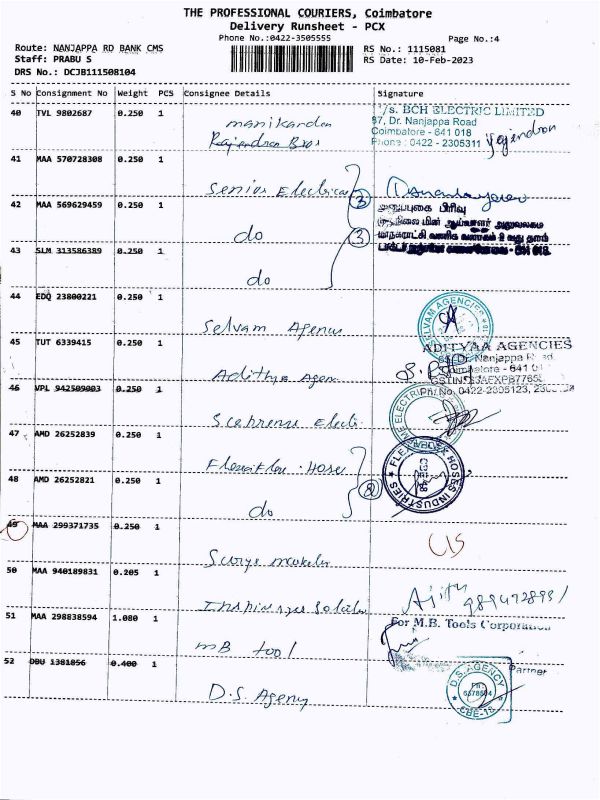 THE PROFESSIONAL COURIERS, Coimbatore
Delivery Runsheet - PCX
Phone No.:0422-3505555
Page No.:4
Route: NANJAPPA RD BANK CMS
RS No.: 1115081
Staff: PRABU S
RS Date: 10-Feb-2023
DRS No.: DCJB111508104
S No Consignment No Weight PCS Consignee Details Signature
40 TVL 9802687 0.250 1
manikandan
Rajendran Bros
/s. BCH ELECTRIC LIMITED
87, Dr. Nanjappa Road
Coimbatore - 641 018
Phone : 0422 - 2305311
41 MAA 570728308 0.250 1
Senior Electrical
42 MAA 569629459 0.250 1
do
3
அலுவலகம்
43 SLM 313586389 0.250 1
do
44 EDQ 23800221 0.250 1
Selvam Agencies
SELVAM AGENCIES
45 TUT 6339415 0.250 1
Adithya Agen
ADITYAA AGENCIES
Dr. Nanjappa
Coimbatore - 641 0
Ph: No. 0422-2305123,
46 VPL 942509003 0.250 1
47 AMD 26252839 0.250 1
Flexiflex Hoses
HOSES INDUSTRIES
48 AMD 26252821 0.250 1
do
2
49 MAA 299371735 0.250 1
Surya
C/S
50 MAA 940189831 0.205 1
Ajith
51 MAA 298838594 1.080 1
MB tool
For M.B. Tools Corporation
Partner
52 DBU 1381856 0.400 1
D.S. Agency
D.S. AGENCY
CBE-18